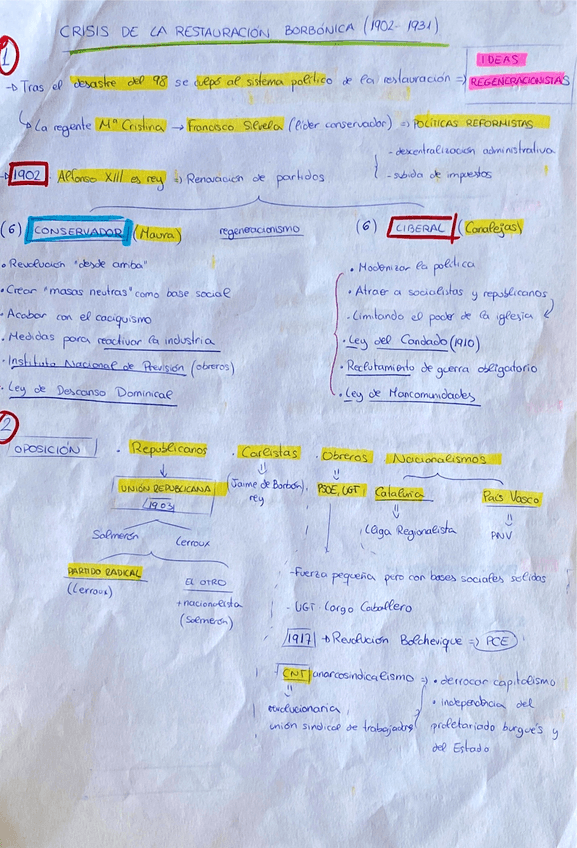 CRISIS DE LA RESTAURACIÓN BORBÓNICA (1902-1931)
1
→ Tras el desastre del 98 se culpó al sistema político de la restauración ⇒ IDEAS REGENERACIONISTAS
↳ La regente Mª Cristina → Francisco Silvela (líder conservador) ⇒ POLÍTICAS REFORMISTAS
- descentralización administrativa
- subida de impuestos
→ 1902 Alfonso XIII es rey ⇒ Renovación de partidos
(6) CONSERVADOR (Maura) regeneracionismo (6) LIBERAL (Canalejas)
• Revolución "desde arriba"
• Crear "masas neutras" como base social
• Acabar con el caciquismo
• Medidas para reactivar la industria
• Instituto Nacional de Previsión (obreros)
• Ley de Descanso Dominical
• Modernizar la política
• Atraer a socialistas y republicanos
• Limitando el poder de la iglesia
• Ley del Candado (1910)
• Reclutamiento de guerra obligatorio
• Ley de Mancomunidades
2
OPOSICIÓN • Republicanos • Carlistas • Obreros • Nacionalismos
UNIÓN REPUBLICANA
1903
Salmerón Lerroux
PARTIDO RADICAL
(Lerroux)
EL OTRO
+ nacionalista
(Salmerón)
(Jaime de Borbón)
rey
PSOE, UGT
Cataluña
Lliga Regionalista
País Vasco
PNV
- Fuerza pequeña pero con bases sociales solidas
- UGT. Largo Caballero
1917 → Revolución Bolchevique ⇒ PCE
CNT anarcosindicalismo ⇒ • derrocar capitalismo
• independencia del
proletariado burgués y
del Estado
revolucionaria
unión sindical de trabajadores